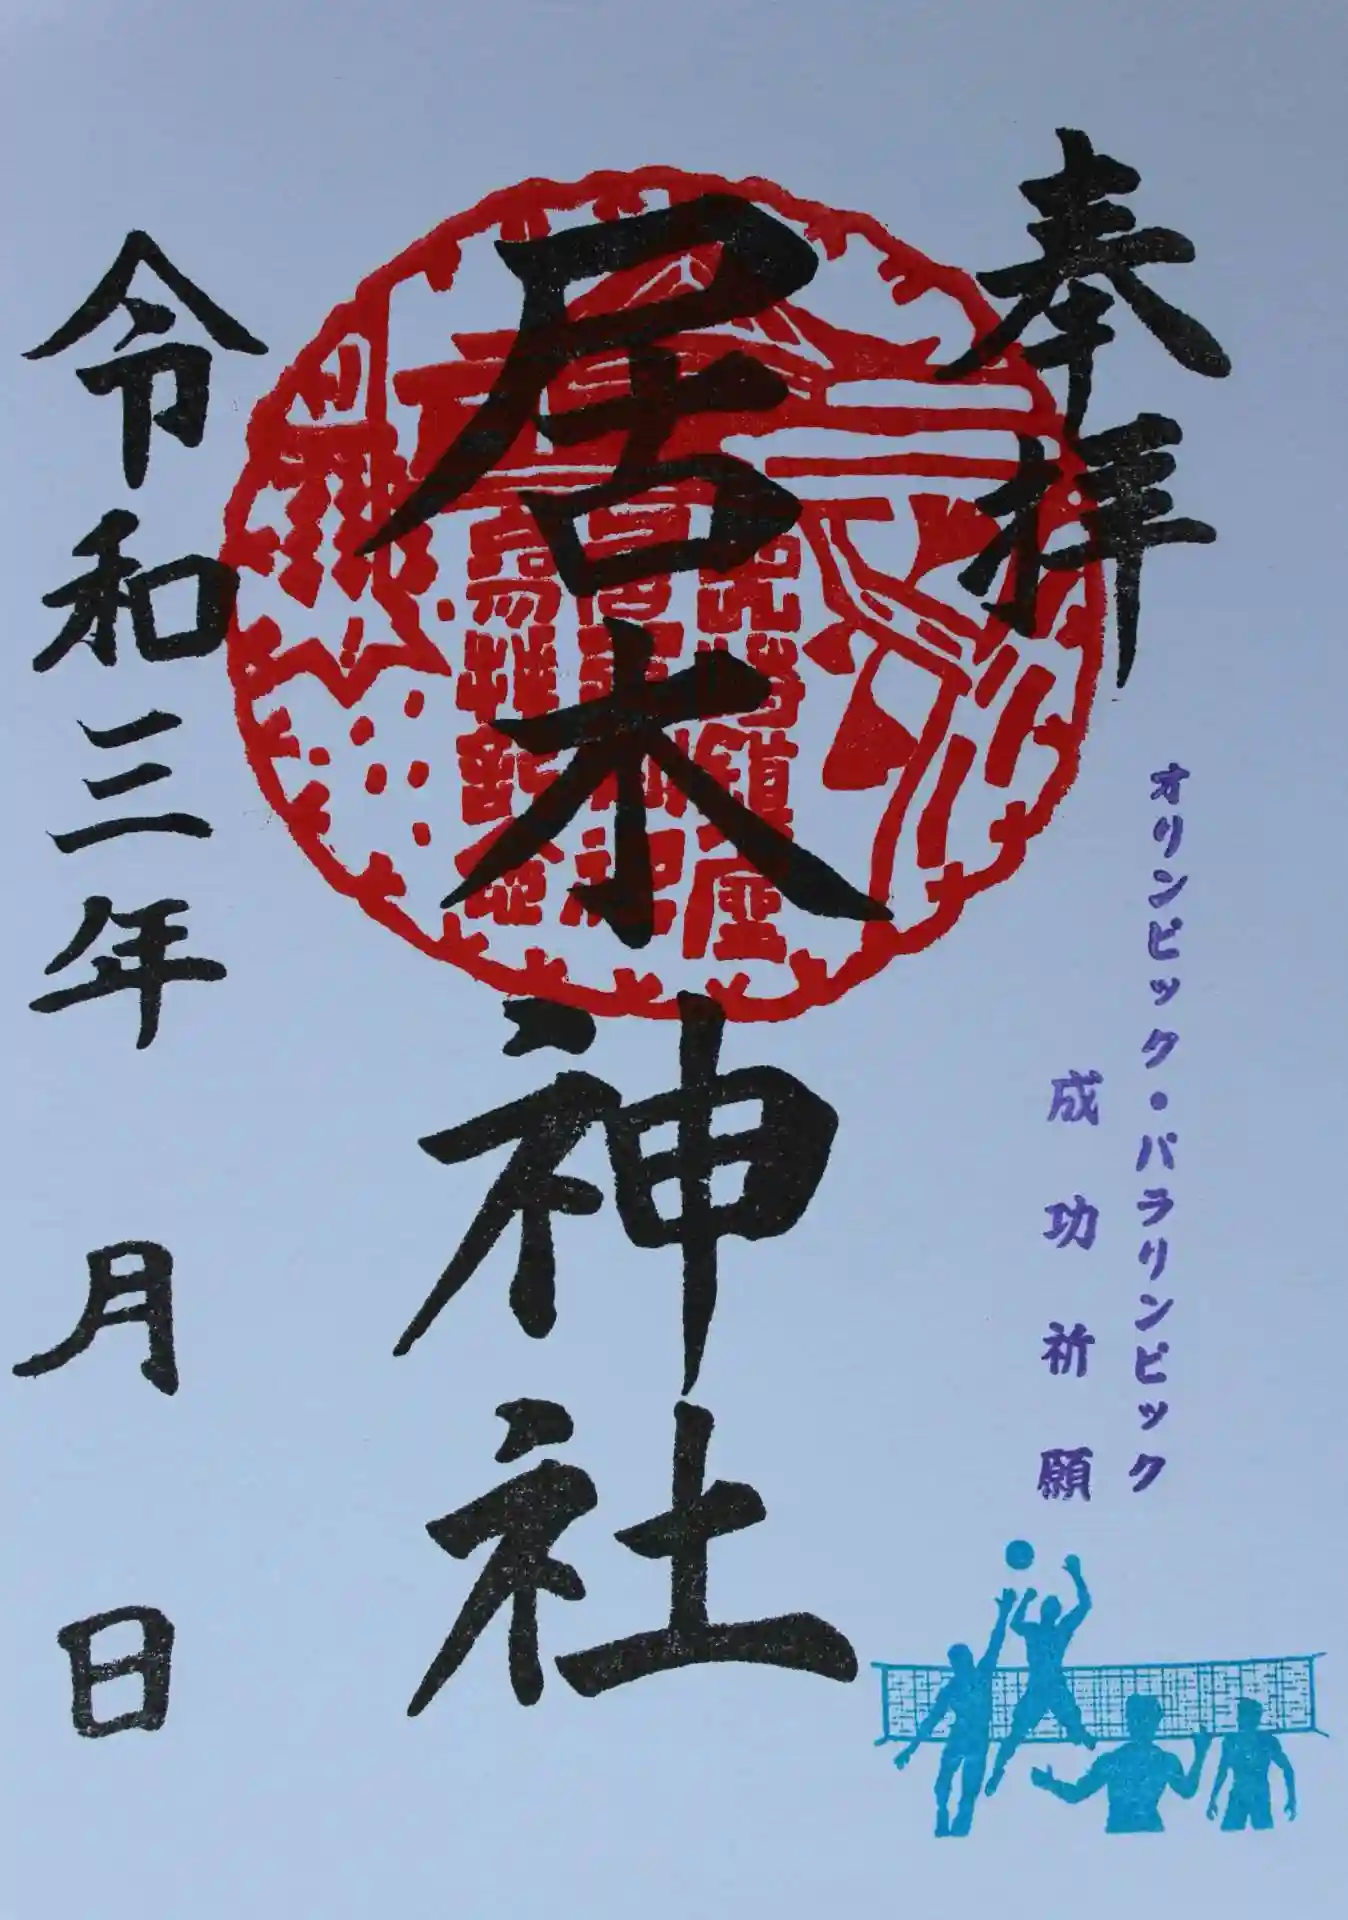 奉拝
オリンピック・パラリンピック
成功祈願
居木神社
令和三年　月　日